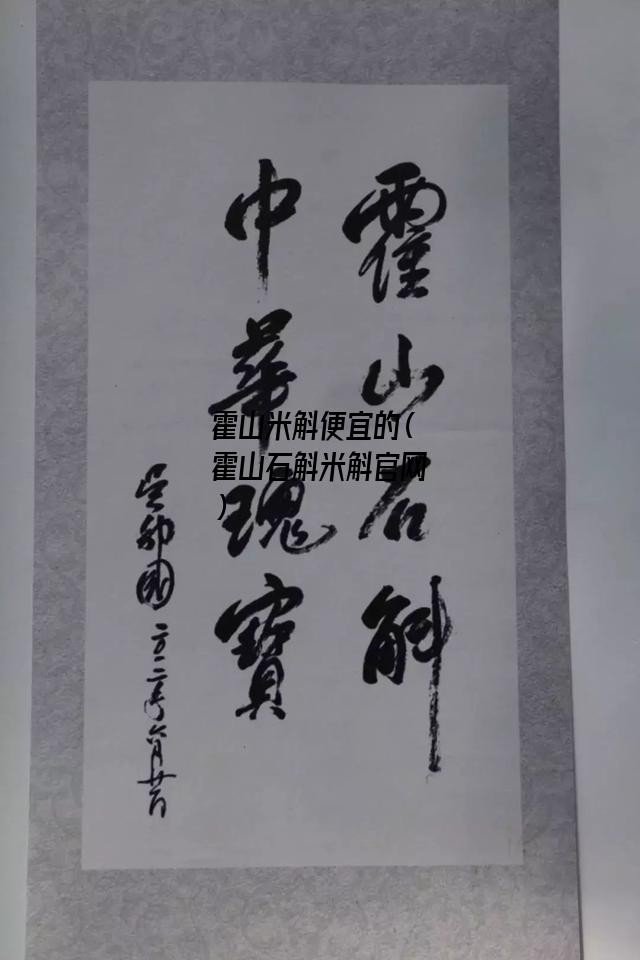 霍山石斛
中華瑰寶
吴邦國 二〇一二年六月
霍山米斛便宜的(
霍山石斛米斛官网
)